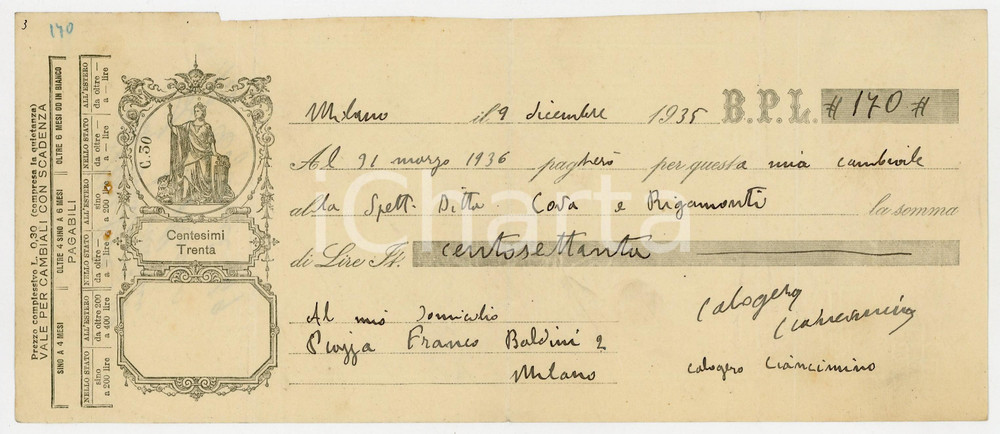 3
170
Prezzo complessivo L. 0,30 (compresa la quietanza)
VALE PER CAMBIALI CON SCADENZA
SINO A 4 MESI OLTRE 4 SINO A 6 MESI OLTRE 6 MESI OD IN BIANCO
PAGABILI
NELLO STATO ALL'ESTERO NELLO STATO ALL'ESTERO NELLO STATO ALL'ESTERO
sino a 200 lire
da oltre 200 a 400 lire
sino a 200 lire
da oltre — a — lire
da oltre — a — lire
C. 30
Centesimi
Trenta
Milano il 9 dicembre 1935 B.P.L. # 170 #
Al 31 marzo 1936 pagherò per questa mia cambiale
alla Spett. Ditta Cova e Rigamonti la somma
di Lire It. centosettanta
Al mio domicilio
Piazza Franco Baldini 2
Milano
Calogero
Ciancimino
Calogero Ciancimino
iCharta